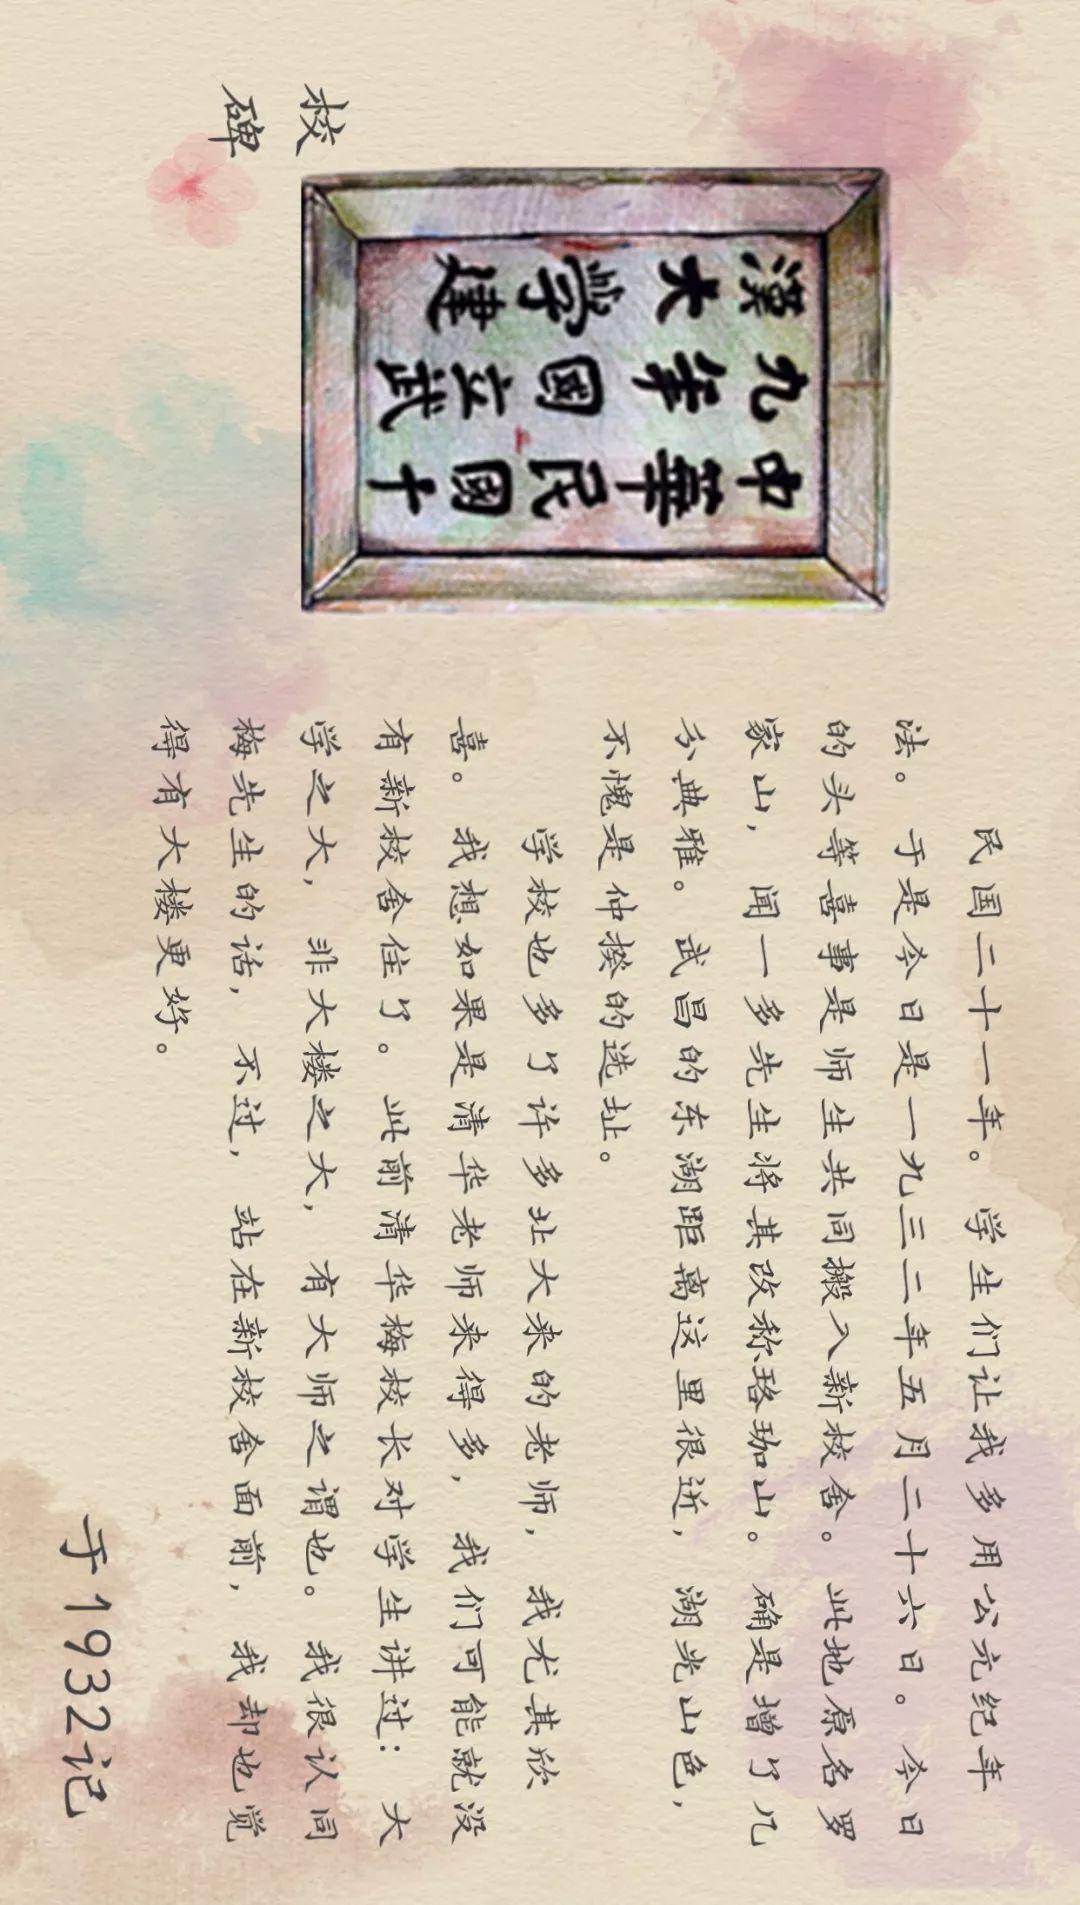 校
碑
中華民國十
九年國立武
漢大學建
民国二十一年。学生们让我多用公元纪年
法。于是今日是一九三二年五月二十六日。今日
的头等喜事是师生共同搬入新校舍。此地原名罗
家山，闻一多先生将其改称珞珈山。确是增了几
分典雅。武昌的东湖距离这里很近，湖光山色，
不愧是仲揆的选址。
学校也多了许多北大来的老师，我尤其欣
喜。我想如果是清华老师来得多，我们可能就没
有新校舍住了。此前清华梅校长对学生讲过：大
学之大，非大楼之大，有大师之谓也。我很认同
梅先生的话，不过，站在新校舍面前，我却也觉
得有大楼更好。
于1932记